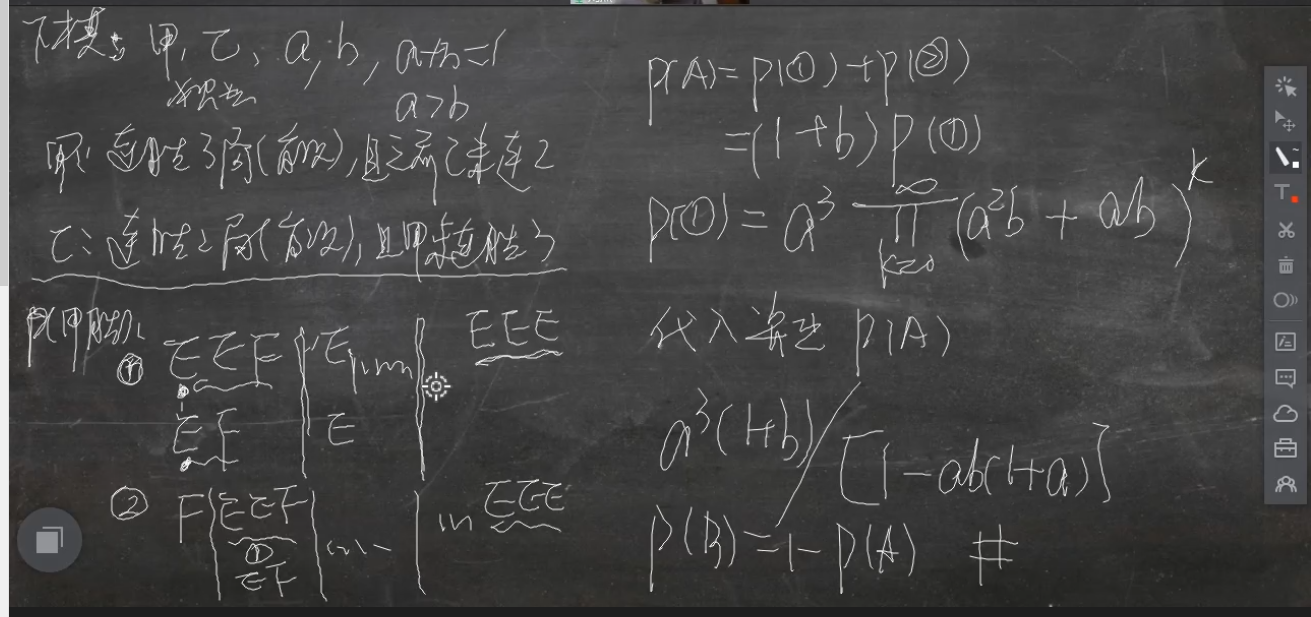 下棋: 甲, 乙, a, b, a+b=1
a>b
甲: 连胜3局(首次), 且之前乙未连2
乙: 连胜2局(首次), 且甲未连胜3
P(甲胜):
① EEF | E | EEE
EF | E
② F | EEF | | EEE
EF
P(A)=P(①)+P(②)
=(1+b)P(①)
P(①)=a³ ∏_{k=0}^{∞} (a²b + ab)^k
代入 P(A)
a³(1+b)/[1-ab(1+a)]
P(B)=1-P(A) #
T